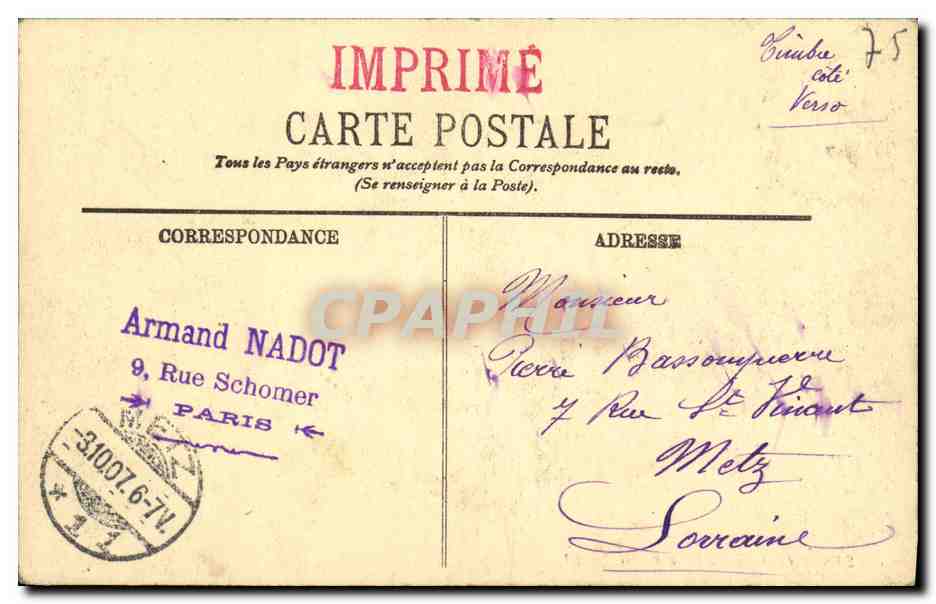 IMPRIMÉ
Timbre
côté
Verso
75
CARTE POSTALE
Tous les Pays étrangers n'acceptent pas la Correspondance au recto.
(Se renseigner à la Poste).
CORRESPONDANCE
Armand NADOT
9, Rue Schomer
PARIS
METZ
-3.10.07.6-7V.
* 1 1
ADRESSE
Monsieur
Pierre Bassompierre
7 Rue St Vincent
Metz
Lorraine
CPAPHIL